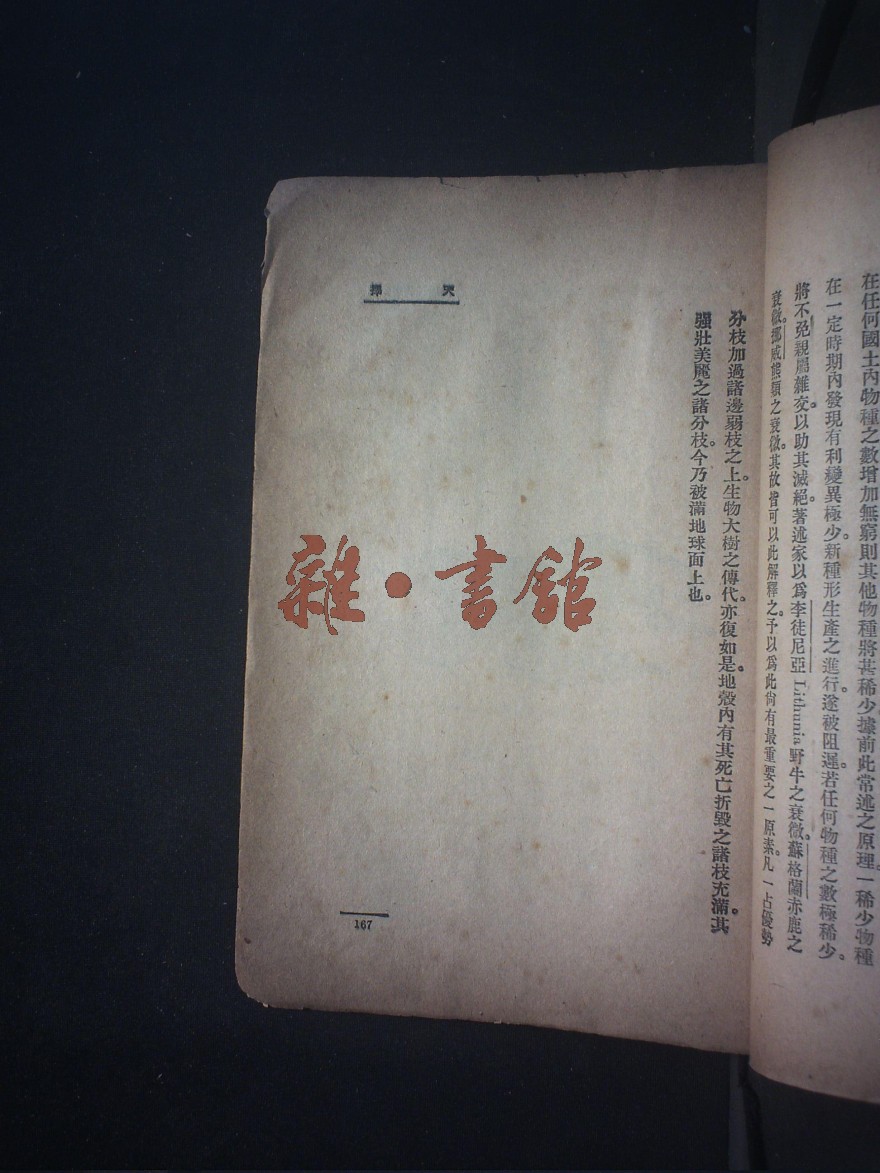 在任何國土內物種之數增加無窮則其他物種將甚稀少據前此常述之原理一稀少物種
在一定時期內發現有利變異極少。新種形生產之進行。遂被阻遲。若任何物種之數極稀少。
將不免親屬雜交。以助其滅絕。著述家以爲李徒尼亞 Lithunia 野牛之衰微。蘇格蘭赤鹿之
衰微。挪威熊類之衰微。其故皆可以此解釋之。予以爲此尙有最重要之一原素。凡一占優勢
天擇
分枝加過諸邊弱枝之上。生物大樹之傳代。亦復如是。地殼內有其死亡折毀之諸枝充滿。其
强壯美麗之諸分枝。今乃被滿地球面上也。
167
雜·書館